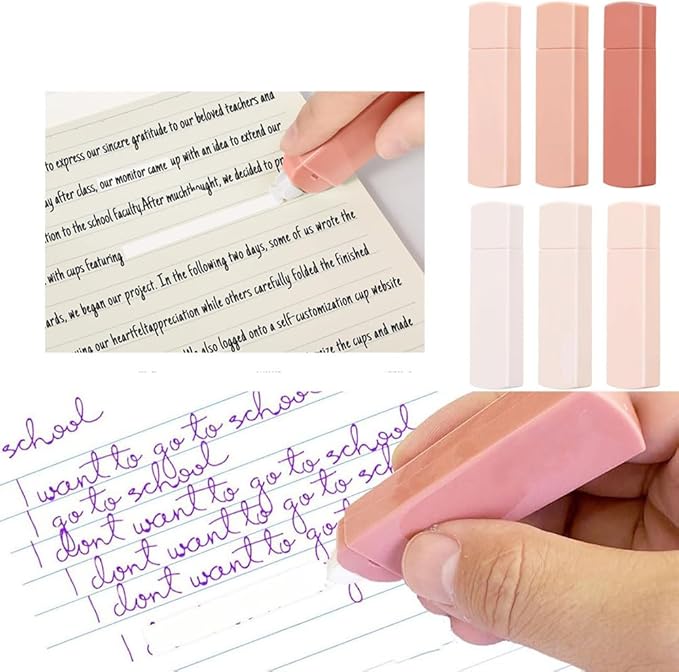 to express our sincere gratitude to our beloved teachers and
ay after class, our monitor came up with an idea to extend our
tion to the school faculty.After muchthought, we decided to pr
with cups featuring
ards, we began our project. In the following two days, some of us wrote the
wing our heartfeltappreciation while others carefully folded the finished
We also logged onto a self-customization cup website
ize the cups and made
school
I want to go to school
I go to school
I dont want to go to school
I dont want to go to sch
I dont want to go
I